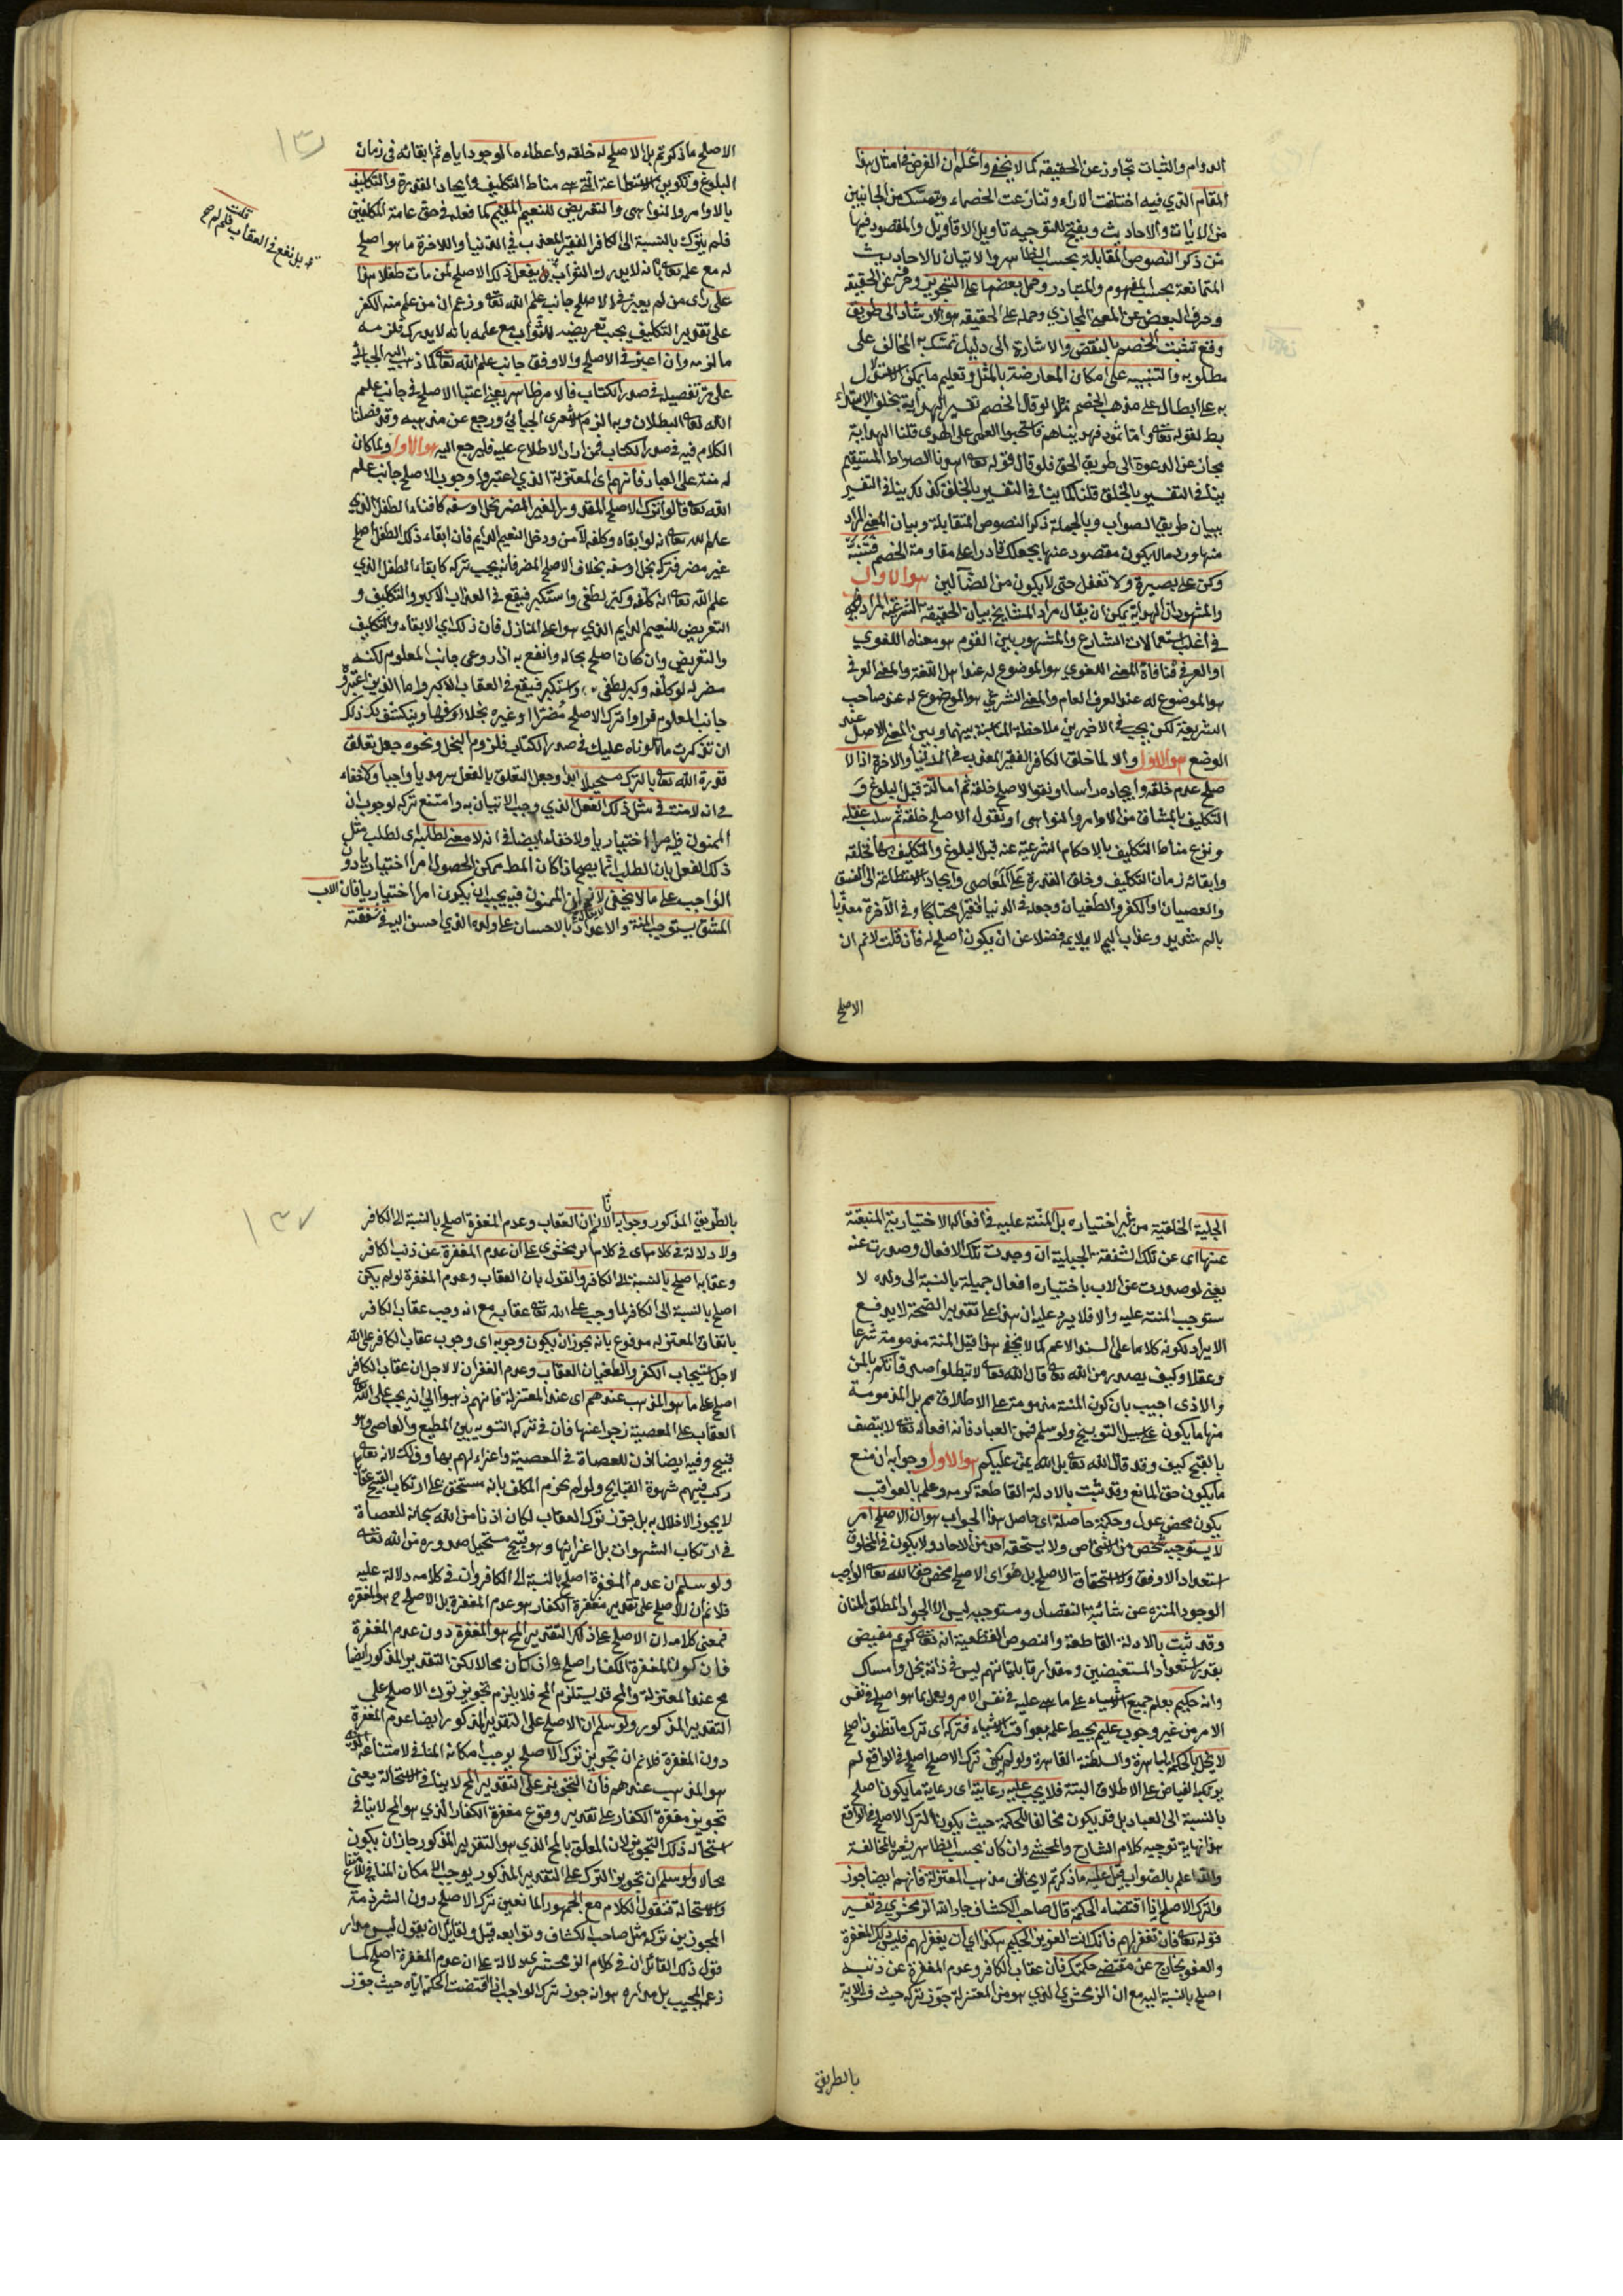 الدوام والثبات تجاوز عن الحقيقة كما لا يخفى واعلم ان الغرض في امثال هذا
المقام الذي فيه اختلفت الاراء وتنازعت الخصماء وتمسك من الجانبين
من الايات والاحاديث ويفتح للتوجيه تاويل الاقاويل والمقصود فيها
من ذكر النصوص المقابلة بحسب الظاهر والاتيان بالاحاديث
المتمانعة بحسب المفهوم والمتبادر وحمل بعضها على التجوز وصرفه عن الحقيقة
وصرف البعض عن المعنى المجازي وحمله على الحقيقة هو الارشاد الى طريق
دفع تشبث الخصم بالنقض والاشارة الى دليل تمسك به المخالف على
مطلوبه والتنبيه على امكان المعارضة بالمثل وتعليم ما يمكن الاستدلال
به على ابطال مذهب الخصم مثلا لو قال الخصم تفسير الهداية بخلق الاهتداء
يبطل لقوله تعالى واما ثمود فهديناهم فاستحبوا العمى على الهدى قلنا الهداية
مجاز عن الدعوة الى طريق الحق فلو قال قوله تعالى اهدنا الصراط المستقيم
ينافي التفسير بالخلق قلنا كما ينافي التفسير بالخلق كذلك ينافي التفسير
ببيان طريق الصواب وبالجملة ذكر النصوص المتقابلة وبيان المعنى المراد
منها ورد ما لا يكون مقصود عنها يجعلك قادرا على مقاومة الخصم فتنبه
وكن على بصيرة ولا تغفل حتى لا يكون من الضآلين هو الاول
والمشهور ان الهداية يمكن ان يقال مراد المشايخ بيان الحقيقة الشرعية المرادة
في اغلب استعمالات الشارع والمشهور بين القوم هو معناه اللغوي
او العرفي فلا منافاة المعنى اللغوي هو الموضوع له عند اهل اللغة والمعنى العرفي
هو الموضوع له عند العرف العام والمعنى الشرعي هو الموضوع له عند صاحب
الشريعة لكن يجب في الاخيرين ملاحظة المناسبة بينهما وبين المعنى الاصلي عند
الوضع هو الاول والا لما خلق الكافر الفقير المعذب في الدنيا والاخرة اذ الا
صلح عدم خلقه وايجاده راسا او نقول الاصلح خلقه ثم اماتته قبل البلوغ و
التكليف بالمشاق من الاوامر والنواهي او نقول الاصلح خلقه ثم سلب عقله
ونزع مناط التكليف بالاحكام الشرعية عنه قبل البلوغ والتكليف بها فخلقه
وابقائه زمان التكليف وخلق القدرة على المعاصي وايجاد الاستطاعة الى الفسق
والعصيان والكفر والطغيان وجعله في الدنيا فقيرا محتاجا وفي الآخرة معذبا
بالم شديد وعذاب اليم لا يلايمه فضلا عن ان يكون اصلح له فان قلت لا نم ان
الاصلح
الاصلح ما ذكرتم بل الاصلح له خلقه واعطاء الوجود اياه ثم ابقائه في زمان
البلوغ وتكوين الاستطاعة التي هي مناط التكليف وايجاد القدرة والتكليف
بالاوامر والنواهي والتعريض للنعيم المقيم كما فعله في حق عامة المكلفين
فلم يترك بالنسبة الى الكافر الفقير المعذب في الدنيا والاخرة ما هو اصلح
له مع علمه تعالى بانه لا يدرك الثواب لم يفعل ذلك الاصلح لمن مات طفلا هذا
على رأى من لم يعتبر في الاصلح جانب علم الله تعالى وزعم ان من علم منه الكفر
على تقدير التكليف يجب تعريضه للثواب مع علمه بانه لا يدرك فلزمه
ما لزمه وان اعتبر في الاصلح والاوفق جانب علم الله تعالى كما ذهب اليه الجبائي
على مر تفصيله في صدر الكتاب فالامر ظاهر يعني اعتبار الاصلح في جانب علم
الله تعالى البطلان وبه الزم الاشعري الجبائي ورجع عن مذهبه وقد فصلنا
الكلام فيه في صدر الكتاب فمن اراد الاطلاع عليه فليرجع اليه هو الاول ولما كان
له منة على العباد فانهم اى المعتزلة الذي اعتبروا وجوب الاصلح جانب علم
الله تعالى قالوا ترك الاصلح المقدور الغير المضر بخل او سفه كافناء الطفل الذي
علم الله تعالى انه لو ابقاه وكلفه لآمن ودخل النعيم الدايم فان ابقاء ذلك الطفل اصلح
غير مضر فتركه بخل او سفه بخلاف الاصلح المضر فانه يجب تركه كابقاء الطفل الذي
علم الله تعالى انه كلفه وكبر لطغى واستكبر فيقع في العذاب الاكبر والتكليف و
التعريض للنعيم الدايم الذي هو اعلى المنازل فان ذلك اي الابقاء والتكليف
والتعريض وان كان اصلح بحاله وانفع به اذا روعي جانب المعلوم لكنه
مضر له لو كلفه وكبر لطغى واستكبر فيقع في العقاب الاكبر واما الذين اعتبروا
جانب المعلوم قرروا ترك الاصلح مضرا او غيره بخلا او سفها وينكشف لك ذلك
ان تذكرت ما تلوناه عليك في صدر الكتاب فلزوم البخل ونحوه جعل تعلق
قدرة الله تعالى بالترك مستحيلا ابدا وجعل التعلق بالفعل سرمديا واجبا ولا خفاء
في انه لا منة في مثل ذلك الفعل الذي وجب الاتيان به وامتنع تركه لوجوب ان
الممنون فيه امرا اختياريا ولا خفاء ايضا في انه لا معنى لطلبه اى لطلب مثل
ذلك الفعل بان الطلب انما يصح اذا كان المط ممكن الحصول امرا اختياريا دون
الواجب على ما لا يخفى لا نم ان الممنون فيه يجب ان يكون امرا اختياريا فان الاب
المشفق يستوجب المنة والاعتداد بالاحسان على ولده الذي احسن اليه في شفقته
قلت
بل نفع في العقاب فلم لم
الجبلية الخلقية من غير اختياره بل المنة عليه في افعاله الاختيارية المنبعثة
عنها اى عن تلك الشفقة الجبلية ان وجدت تلك الافعال وصدرت عنه
يعني لو صدرت عن الاب باختياره افعال جميلة بالنسبة الى ولده لا
ستوجب المنة عليه والا فلا يرد عليه ان هذا على تقدير الصحة لا يدفع
الايراد لكونه كلاما على السند الاعم كما لا يخفى هذا قيل المنة مذمومة شرعا
وعقلا وكيف يصدر من الله تعالى قال الله تعالى لا تبطلوا صدقاتكم بالمن
والاذى اجيب بان كون المنة مذمومة على الاطلاق مم بل المذمومة
منها ما يكون على سبيل التوبيخ ولو سلم فمن العباد فانه افعاله تعالى لا يتصف
بالقبح كيف وقد قال الله تعالى بل الله يمن عليكم هو الاول وجوابه ان منع
ما يكون حق المانع وقد ثبت بالادلة القاطعة كرمه وعلمه بالعواقب
يكون محض عدل وحكمة حاصله اى حاصل هذا الجواب هو ان الاصلح امر
لا يستوجبه شخص من الاشخاص ولا يستحقه احد من الاحاد ولا يكون في المخلوق
استعداد الاوفق ولا استحقاق الاصلح بل هو اى الاصلح محض حق الله تعالى الواجب
الوجود المنزه عن شائبة النقصان ومستوجبه ليس الا الجواد المطلق المنان
وقد ثبت بالادلة القاطعة والنصوص القطعية انه تعالى كريم مفيض
بقدر استعداد المستفيضين ومقدار قابلياتهم ليس في ذاته بخل وامساك
وانه حكيم يعلم جميع الاشياء على ما هي عليه في نفس الامر ويعلم ما هو اصلح في نفس
الامر من غير وجوب عليم يحيط علمه بعواقب الاشياء فتركه اى ترك ما نظنون اصلح
لا يخل بالحكمة الباهرة والسلطنة القاهرة ولو لم يكن ترك الاصلح اصلح في الواقع لم
يتركه الفياض على الاطلاق البتة فلا يجب عليه رعايته اى رعاية ما يكون اصلح
بالنسبة الى العباد بل قد يكون مخالفا للحكمة حيث يكون الترك الاصلح في الواقع
هذا نهاية توجيه كلام الشارح والمحشى وان كان بحسب الظاهر يشعر بالمخالفة
والله اعلم بالصواب قيل عليه ما ذكرتم لا يخالف مذهب المعتزلة فانهم ايضا جوز
وا ترك الاصلح اذا اقتضاه الحكمة قال صاحب الكشاف جار الله الزمخشري في تفسير
قوله تعالى فان تغفر لهم فانك انت العزيز الحكيم هكذا اي ان يغفر لهم فليس ذلك المغفرة
والعفو بخارج عن مقتضى حكمتك فان عقاب الكافر وعدم المغفرة عن ذنبه
اصلح بالنسبة اليه مع ان الزمخشري الذي هو من المعتزلة جوز تركه حيث فسر الآية
بالطريق
بالطريق المذكور وجوابه انا لا نم ان العقاب وعدم المغفرة اصلح بالنسبة الى الكافر
ولا دلالة في كلامه اى في كلام الزمخشري على ان عدم المغفرة عن ذنب الكافر
وعقابه اصلح بالنسبة الى الكافر والقول بان العقاب وعدم المغفرة لو لم يكن
اصلح بالنسبة الى الكافر لما وجب على الله تعالى عقابه مع انه وجب عقاب الكافر
باتفاق المعتزلة مدفوع بانه يجوز ان يكون وجوبه اى وجوب عقاب الكافر على الله
لاجل استيجاب الكفر والطغيان العقاب وعدم الغفران لا لاجل ان عقاب الكافر
اصلح على ما هو المذهب عندهم اى عند المعتزلة فانهم ذهبوا الى انه يجب على الله تعالى
العقاب على المعصية زجرا عنها فان في تركه التسوية بين المطيع والعاصي وهو
قبيح وفيه ايضا اذن للعصاة في المعصية واغراء لهم بها وذلك لانه تعالى
ركب فيهم شهوة القبايح ولو لم يجزم المكلف بانه مستحق على ارتكاب القبيح عقابا
لا يجوز الاخلال به بل جوز ترك العقاب لكان اذنا من الله سبحانه للعصاة
في ارتكاب الشهوات بل اغرائها وهو قبيح مستحيل صدوره من الله تعالى
ولو سلم ان عدم المغفرة اصلح بالنسبة الى الكافر وان في كلامه دلالة عليه
فلا نم ان الاصلح على تقدير مغفرة الكفار هو عدم المغفرة بل الاصلح ح هو المغفرة
فمعنى كلامه ان الاصلح على ذلك التقدير المح هو المغفرة دون عدم المغفرة
فان كون المغفرة الكفار اصلح وان كان محالا لكن التقدير المذكور ايضا
مح عند المعتزلة والمح قد يستلزم المح فلا يلزم تجويز ترك الاصلح على
التقدير المذكور ولو سلم ان الاصلح على التقدير المذكور ايضا عدم المغفرة
دون المغفرة فلا نم ان تجويز ترك الاصلح يوجب امكانه المنافي لامتناعه الذي
هو المذهب عندهم فان التجويز على التقدير المح لا ينافي الاستحالة يعني
تجويز مغفرة الكفار على تقدير وقوع مغفرة الكفار الذي هو المح لا ينافي
استحالة ذلك التجويز لان المعلق بالمح الذي هو التقدير المذكور جاز ان يكون
محالا ولو سلم ان تجويز الترك على التقدير المذكور يوجب الامكان المنافي للامتناع
والاستحالة فنقول الكلام مع الجمهور المانعين ترك الاصلح دون الشرذمة
المجوزين تركه مثل صاحب الكشاف وتوابعه قيل ولقائل ان يقول ليس مدار
قول ذلك القائل ان في كلام الزمخشري دلالة على ان عدم المغفرة اصلح كما
زعم المجيب بل مداره هو انه جوز ترك الواجب اذا اقتضت الحكمة اياه حيث جوز